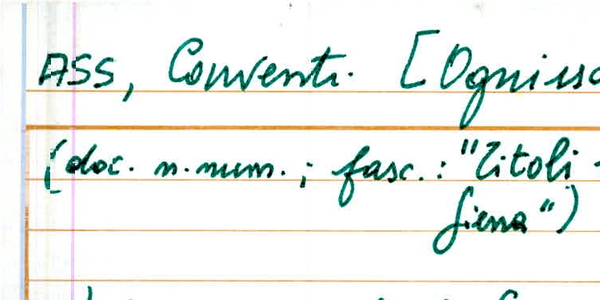 ASS, Conventi. [Ognissa
(doc. n. num. ; fasc. : "Titoli
Siena")